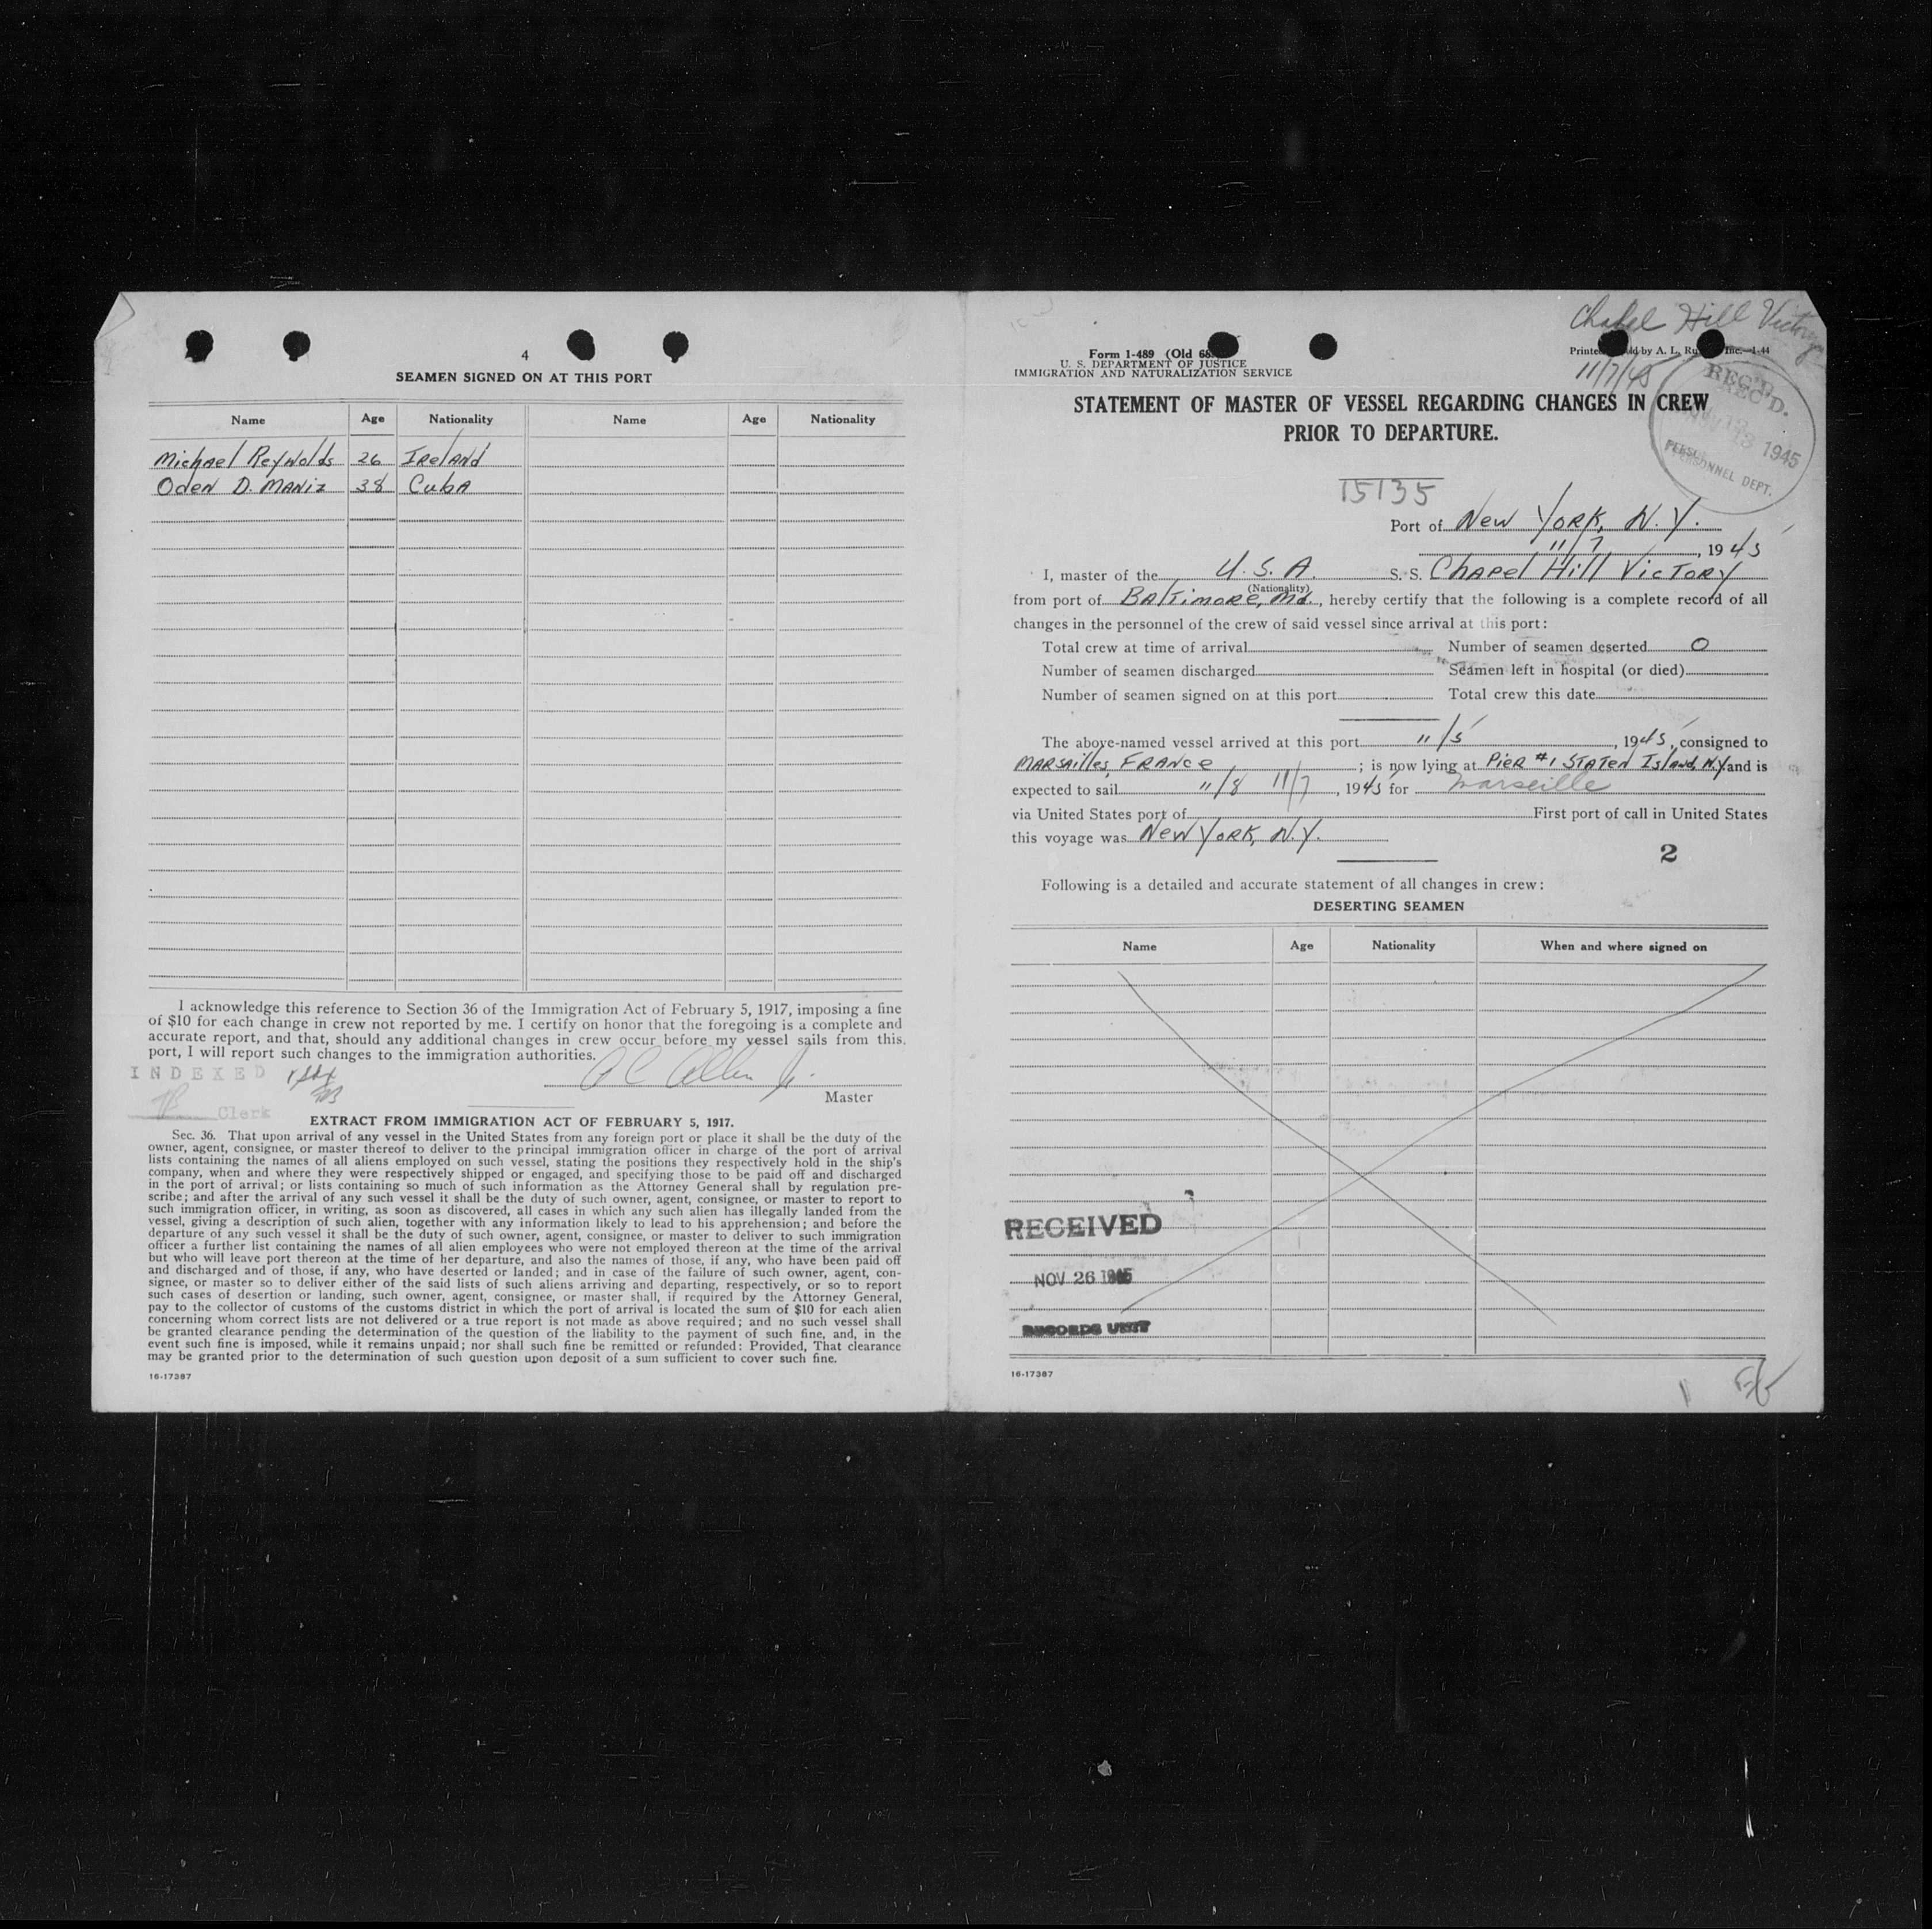 4
SEAMEN SIGNED ON AT THIS PORT
Name Age Nationality Name Age Nationality
Michael Reynolds 26 Ireland
Oden D. Maniz 38 Cuba
I acknowledge this reference to Section 36 of the Immigration Act of February 5, 1917, imposing a fine
of $10 for each change in crew not reported by me. I certify on honor that the foregoing is a complete and
accurate report, and that, should any additional changes in crew occur before my vessel sails from this
port, I will report such changes to the immigration authorities.
INDEXED
Clerk
Master
EXTRACT FROM IMMIGRATION ACT OF FEBRUARY 5, 1917.
Sec. 36. That upon arrival of any vessel in the United States from any foreign port or place it shall be the duty of the
owner, agent, consignee, or master thereof to deliver to the principal immigration officer in charge of the port of arrival
lists containing the names of all aliens employed on such vessel, stating the positions they respectively hold in the ship's
company, when and where they were respectively shipped or engaged, and specifying those to be paid off and discharged
in the port of arrival; or lists containing so much of such information as the Attorney General shall by regulation pre-
scribe; and after the arrival of any such vessel it shall be the duty of such owner, agent, consignee, or master to report to
such immigration officer, in writing, as soon as discovered, all cases in which any such alien has illegally landed from the
vessel, giving a description of such alien, together with any information likely to lead to his apprehension; and before the
departure of any such vessel it shall be the duty of such owner, agent, consignee, or master to deliver to such immigration
officer a further list containing the names of all alien employees who were not employed thereon at the time of the arrival
but who will leave port thereon at the time of her departure, and also the names of those, if any, who have been paid off
and discharged and of those, if any, who have deserted or landed; and in case of the failure of such owner, agent, con-
signee, or master so to deliver either of the said lists of such aliens arriving and departing, respectively, or so to report
such cases of desertion or landing, such owner, agent, consignee, or master shall, if required by the Attorney General,
pay to the collector of customs of the customs district in which the port of arrival is located the sum of $10 for each alien
concerning whom correct lists are not delivered or a true report is not made as above required; and no such vessel shall
be granted clearance pending the determination of the question of the liability to the payment of such fine, and, in the
event such fine is imposed, while it remains unpaid; nor shall such fine be remitted or refunded: Provided, That clearance
may be granted prior to the determination of such question upon deposit of a sum sufficient to cover such fine.
16-17387
Chapel Hill Victory
11/7/45
Form I-489 (Old 68
U. S. DEPARTMENT OF JUSTICE
IMMIGRATION AND NATURALIZATION SERVICE
Printed by A. L. Inc.—1-44
REC'D.
1945
PERSONNEL DEPT.
STATEMENT OF MASTER OF VESSEL REGARDING CHANGES IN CREW
PRIOR TO DEPARTURE.
15135
Port of New York, N.Y.
11/7, 1945
I, master of the U.S.A. S. S. Chapel Hill Victory
(Nationality)
from port of Baltimore, Md., hereby certify that the following is a complete record of all
changes in the personnel of the crew of said vessel since arrival at this port:
Total crew at time of arrival Number of seamen deserted 0
Number of seamen discharged Seamen left in hospital (or died)
Number of seamen signed on at this port Total crew this date
The above-named vessel arrived at this port 11/5, 1945, consigned to
Marsailles, France; is now lying at Pier #1 Staten Island, N.Y. and is
expected to sail 11/8 11/7, 1945 for Marseille
via United States port of First port of call in United States
this voyage was New York, N.Y.
2
Following is a detailed and accurate statement of all changes in crew:
DESERTING SEAMEN
Name Age Nationality When and where signed on
RECEIVED
NOV 26 1945
RECORDS UNIT
16-17387